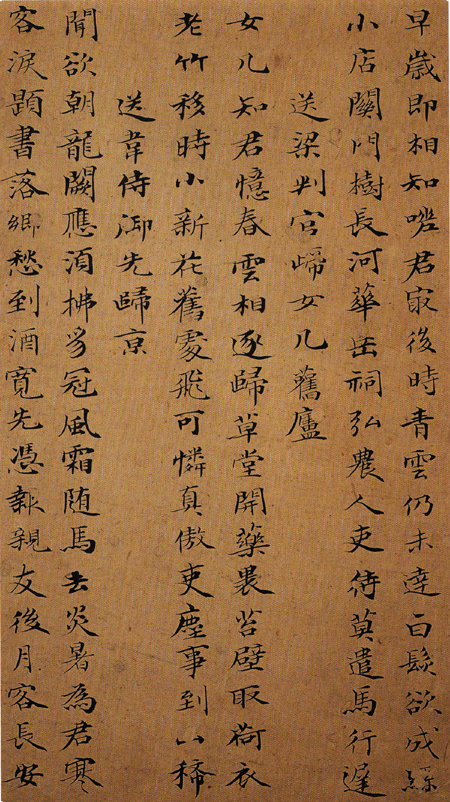 早歲即相知嗟君㝡後時青雲仍未達白髮欲成絲
小店關門樹長河華岳祠弘農人吏待莫遣馬行遲
送梁判官歸女几舊廬
女几知君憶春雲相逐歸草堂開藥裹苔壁取荷衣
老竹移時小新花舊處飛可憐真傲吏塵事到山稀
送韋侍御先歸亰
聞欲朝龍闕應須拂豸冠風霜随馬去炎暑為君寒
客淚題書落鄉愁到酒寬先憑報親友後月客長安